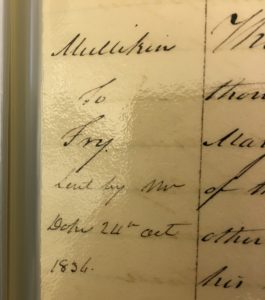 Mullikin
To
Fry.
Sent by Mr
24th Oct
1836.
Th
thou
Mar
of th
other
his